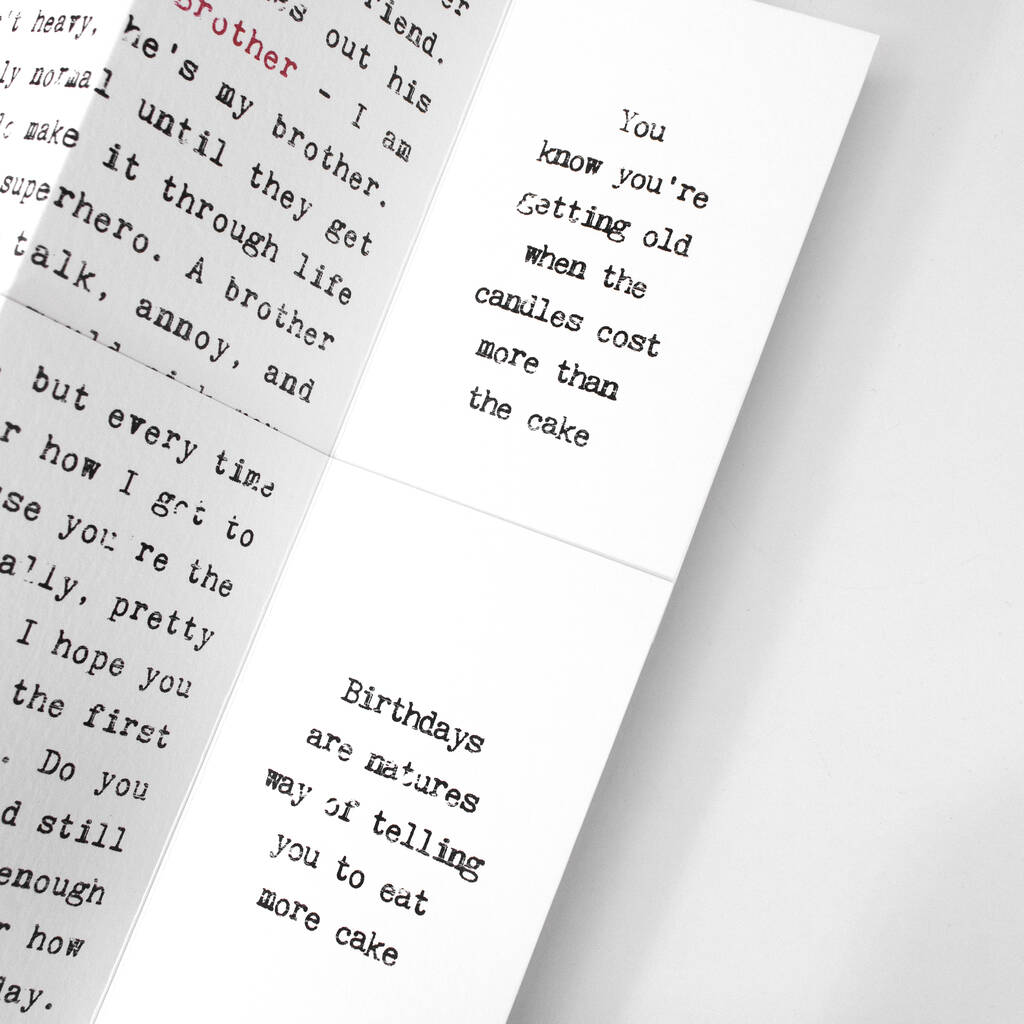 't heavy,
ly normal
make
superhero.
talk, annoy, and
friend.
out his
Brother - I am
he's my brother.
until they get
it through life
A brother
but every time
r how I got to
se you're the
ally, pretty
I hope you
the first
. Do you
d still
enough
r how
day.
You
know you're
getting old
when the
candles cost
more than
the cake
Birthdays
are natures
way of telling
you to eat
more cake